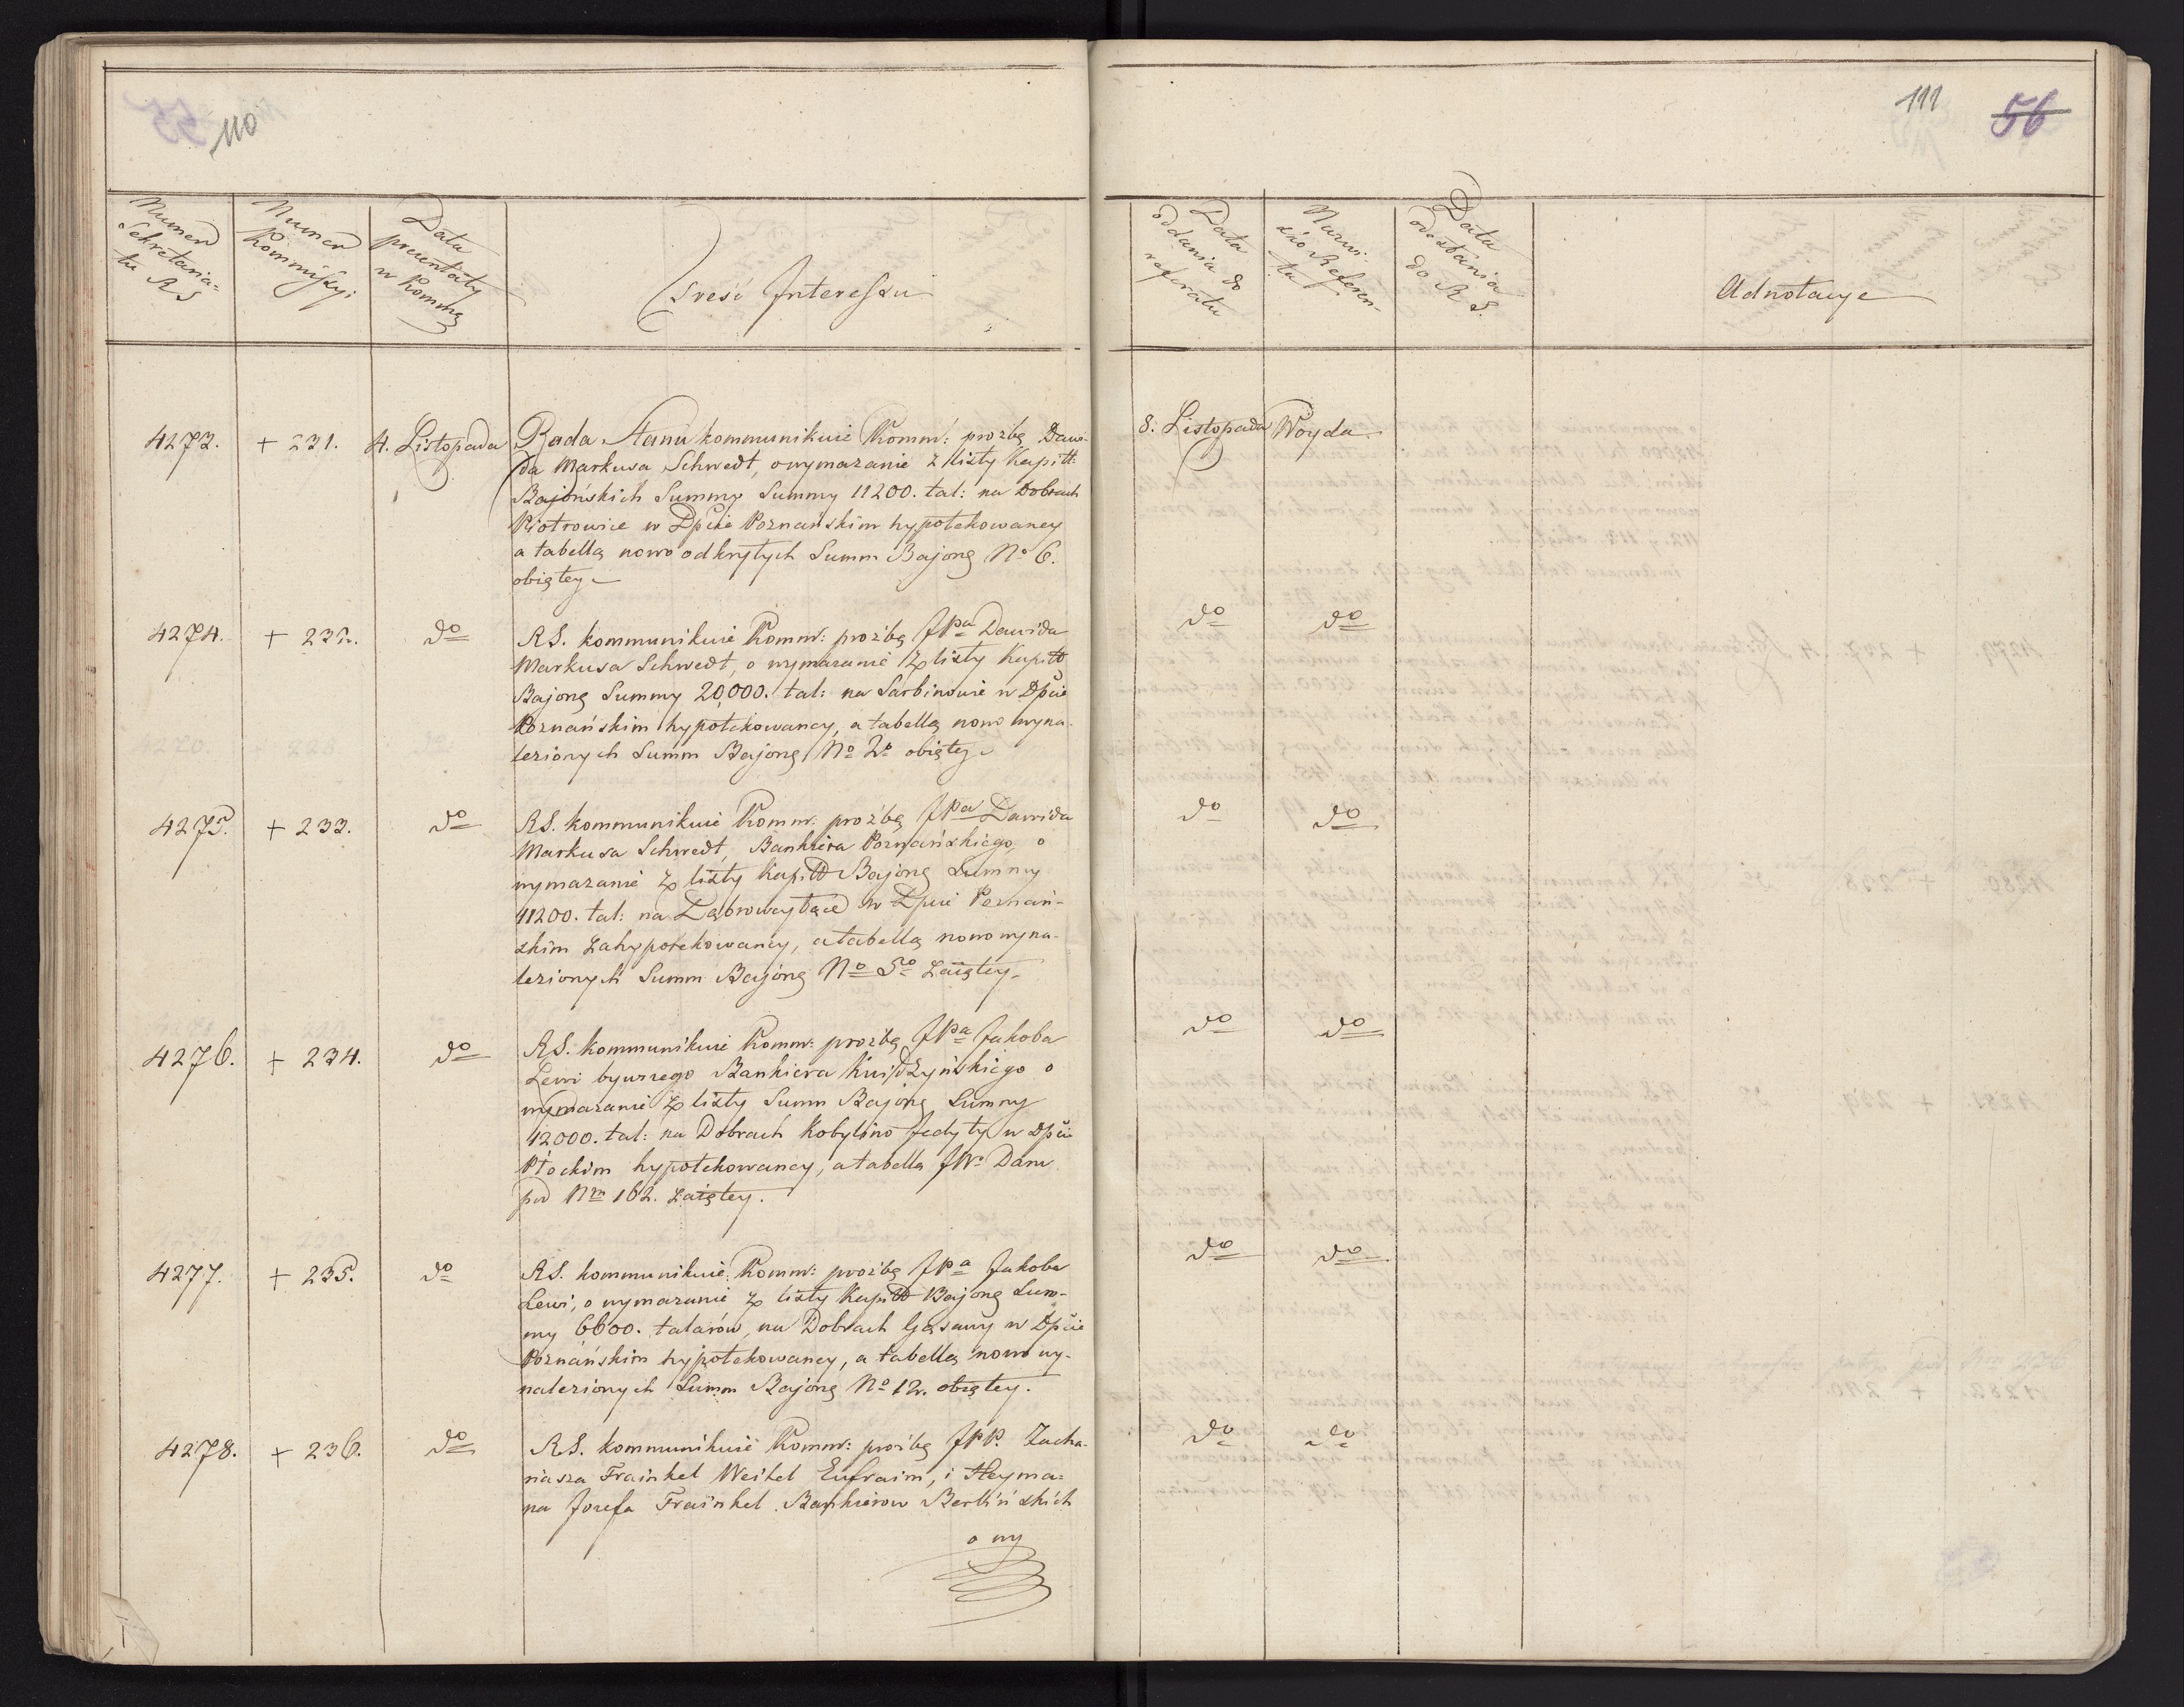 110
Numer Sekretaria=
tu RS
Numer
Kommissyi
Data
prezentaty
w Kommą
Treść Interessu
4273. + 231. 4. Listopada Rada Stanu kommunikuie Komm: prozbę Dawi-
da Markusa Schwedt, o wymazanie z listy Kapitt:
Bajońskich Summy Summy 11200. tal: na Dobrach
Piotrowice w Dpcie Poznańskim hypotekowaney
a tabellą nowo odkrytych Summ Bajong No 6.
obiętey
4274. + 232. do RS. kommunikuie Komm: prozbę JPa Dawida
Markusa Schwedt, o wymazanie z listy Kapitt
Bajong Summy 20,000. tal: na Sarbinowie w Dpcie
Poznańskim hypotekowaney, a tabellą nowo wyna-
lezionych Summ Bajong No 2o obiętey
4275. + 233. do RS. kommunikuie Komm: prozbę JPa Dawida
Markusa Schwedt, Bankiera Poznańskiego, o
wymazanie z listy Kapitt Bajong Summy
11200. tal: na w Dpcie Poznań-
skim zahypotekowaney, a tabellą nowo wyna-
lezionych Summ Bajong No 5o zaiętey
4276. + 234. do RS. kommunikuie Komm: prozbę JPa Jakoba
Lewi bywszego Bankiera Kwidzyńskiego o
wymazanie z listy Summ Bajong Summy
12000. tal: na Dobrach Kobylino Jedyty w Dpcie
Płockim hypotekowaney, a tabellą JW. Daru
pod Nrm 162. zaiętey.
4277. + 235. do RS. kommunikuie Komm: prozbę JPa Jakoba
Lewi, o wymazanie z listy Kapitt Bajong Sum-
my 6600. talarów, na Dobrach Gąsawy w Dpcie
Poznańskim hypotekowaney, a tabellą nowo wy-
nalezionych Summ Bajong No 12. obiętey.
4278. + 236. do RS. kommunikuie Komm: prozbę JPP. Zacha-
riasza Frainkel Weikel Eufraim, i Heyma=
na Jozefa Frainkel Bankierow Berlińskich
o wy
111 56
Data
oddania do
referatu
Nazwi-
sko Referen-
ta
Data
odesłania
do RS.
Adnotacye
8. Listopada Woyda
do do
do do
do do
do do
do do